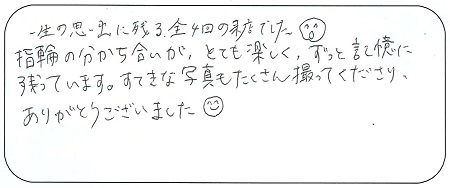 一生の思い出に残る、全4回の来店でした
指輪の分かち合いが、とても楽しく、ずっと記憶に
残っています。すてきな写真もたくさん撮ってくださり、
ありがとうございました